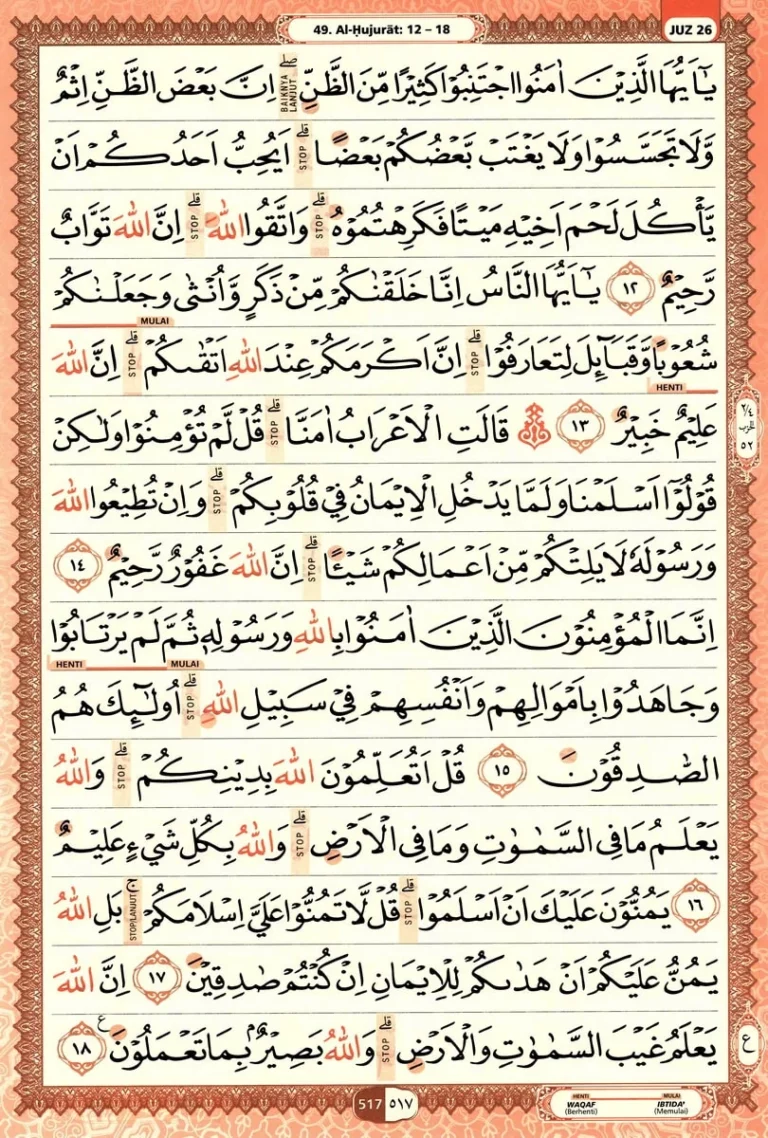 49. Al-Ḥujurāt: 12 – 18
JUZ 26
يٰٓاَيُّهَا الَّذِيْنَ اٰمَنُوا اجْتَنِبُوْا كَثِيْرًا مِّنَ الظَّنِّۖ BAIKNYA LANJUT اِنَّ بَعْضَ الظَّنِّ اِثْمٌ
وَّلَا تَجَسَّسُوْا وَلَا يَغْتَبْ بَّعْضُكُمْ بَعْضًاۗ STOP اَيُحِبُّ اَحَدُكُمْ اَنْ
يَّأْكُلَ لَحْمَ اَخِيْهِ مَيْتًا فَكَرِهْتُمُوْهُۗ STOP وَاتَّقُوا اللّٰهَۗ STOP اِنَّ اللّٰهَ تَوَّابٌ
رَّحِيْمٌ ١٢ يٰٓاَيُّهَا النَّاسُ اِنَّا خَلَقْنٰكُمْ مِّنْ ذَكَرٍ وَّاُنْثٰى وَجَعَلْنٰكُمْ
MULAI
شُعُوْبًا وَّقَبَاۤىِٕلَ لِتَعَارَفُوْاۗ STOP اِنَّ اَكْرَمَكُمْ عِنْدَ اللّٰهِ اَتْقٰىكُمْۗ STOP اِنَّ اللّٰهَ
HENTI
عَلِيْمٌ خَبِيْرٌ ١٣ ۞ قَالَتِ الْاَعْرَابُ اٰمَنَّاۗ STOP قُلْ لَّمْ تُؤْمِنُوْا وَلٰكِنْ
قُوْلُوْٓا اَسْلَمْنَا وَلَمَّا يَدْخُلِ الْاِيْمَانُ فِيْ قُلُوْبِكُمْۗ STOP وَاِنْ تُطِيْعُوا اللّٰهَ
وَرَسُوْلَهٗ لَا يَلِتْكُمْ مِّنْ اَعْمَالِكُمْ شَيْـًٔاۗ STOP اِنَّ اللّٰهَ غَفُوْرٌ رَّحِيْمٌ ١٤
اِنَّمَا الْمُؤْمِنُوْنَ الَّذِيْنَ اٰمَنُوْا بِاللّٰهِ وَرَسُوْلِهٖ ثُمَّ لَمْ يَرْتَابُوْا
MULAI HENTI
وَجَاهَدُوْا بِاَمْوَالِهِمْ وَاَنْفُسِهِمْ فِيْ سَبِيْلِ اللّٰهِۗ STOP اُولٰۤىِٕكَ هُمُ
الصّٰدِقُوْنَ ١٥ قُلْ اَتُعَلِّمُوْنَ اللّٰهَ بِدِيْنِكُمْۗ STOP وَاللّٰهُ
يَعْلَمُ مَا فِى السَّمٰوٰتِ وَمَا فِى الْاَرْضِۗ STOP وَاللّٰهُ بِكُلِّ شَيْءٍ عَلِيْمٌ
١٦ يَمُنُّوْنَ عَلَيْكَ اَنْ اَسْلَمُوْاۗ STOP قُلْ لَّا تَمُنُّوْا عَلَيَّ اِسْلَامَكُمْۚ STOP/LANJUT بَلِ اللّٰهُ
يَمُنُّ عَلَيْكُمْ اَنْ هَدٰىكُمْ لِلْاِيْمَانِ اِنْ كُنْتُمْ صٰدِقِيْنَ ١٧ اِنَّ اللّٰهَ
يَعْلَمُ غَيْبَ السَّمٰوٰتِ وَالْاَرْضِۗ STOP وَاللّٰهُ بَصِيْرٌۢ بِمَا تَعْمَلُوْنَ ࣖ ١٨
٢/٤
الحزب
٥٢
ع
517 ٥١٧
HENTI MULAI
WAQAF IBTIDA'
(Berhenti) (Memulai)